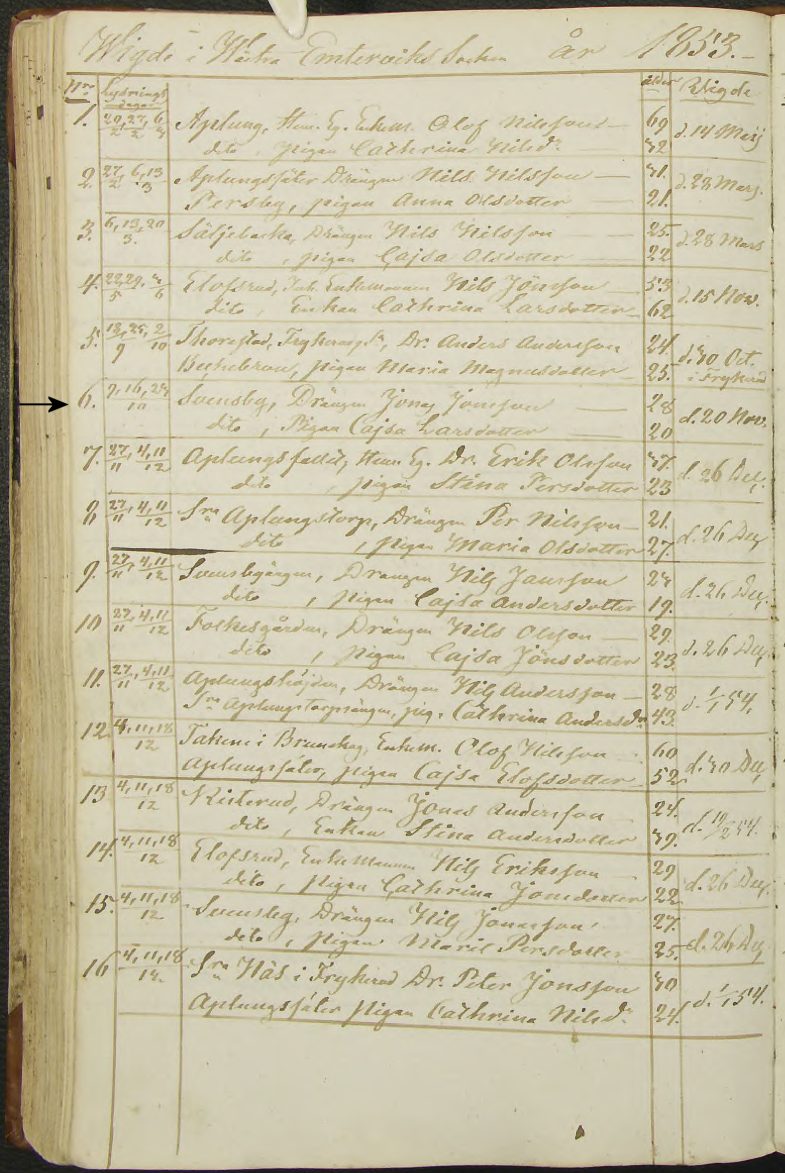 Wigde i Westra Emterviks Socken år 1853.
Nro Lysnings dagar ålder Wigde
1. 20/2, 27/2, 6/3 Aplung, Hem. Eg. Enkem. Olof Nilsson 69 d. 14 Maij
dito, pigan Cathrina Nilsdr 42
2. 27/2, 6, 13/3 Aplungssäter Drängen Nils Nilsson 31. d. 28 Mars.
Persby, pigan Anna Olsdotter 21.
3. 6, 13, 20/3. Säljebacka, Drängen Nils Nilsson 25. d. 28 Mars
dito, pigan Cajsa Olsdotter 22
4. 22, 29/5, /6 Elofsrud, Enkemannen Nils Jönsson 53 d. 15 Nov.
dito, Enkan Cathrina Larsdotter 62
5. 18, 25/9, 2/10 Thorestad, Dr. Anders Andersson 24. d. 30 Oct.
pigan Maria Magnusdotter 25. i Fryksrud
6. 9, 16, 23/10 Svensby, Drängen Jonas Jonsson 28 d. 20 Nov.
dito, Pigan Cajsa Larsdotter 20
7. 27/11, 4, 11/12 Aplungsfallet, Hem. Eg. Dr. Erik Olsson 37. d. 26 Dec.
dito, pigan Stina Persdotter 23
8. 27/11, 4, 11/12 Sra Aplungstorp, Drängen Per Nilsson 21. d. 26 Dec
dito, pigan Maria Olsdotter 27.
9. 27/11, 4, 11/12 Svensbyängen, Drängen Nils Jansson 23 d. 26 Dec.
dito, pigan Cajsa Andersdotter 19.
10 27/11, 4, 11/12 Folkesgården, Drängen Nils Olsson 29. d. 26 Dec,
dito, pigan Cajsa Jönsdotter 23.
11. 27/11, 4, 11/12 Aplungshöjden, Drängen Nils Andersson 28 d. 1/1 54.
Sra Aplungstorpsängen, pig. Cathrina Andersdr 43.
12. 4, 11, 18/12 i Brunskog, Enkem. Olof Nilsson 60 d. 30 Dec
Aplungssäter, pigan Cajsa Elofsdotter 52
13 4, 11, 18/12 Kisterud, Drängen Jonas Andersson 24. d. /2 54.
dito, Enkan Stina Andersdotter 39.
14. 4, 11, 18/12 Elofsrud, Enkemannen Nils Eriksson 29 d. 26 Dec.
dito, pigan Cathrina Jonsdotter 22
15. 4, 11, 18/12 Svensby, Drängen Nils Jonasson 27. d. 26 Dec
dito, pigan Marit Persdotter 25.
16 4, 11, 18/12. Sra Näs i Fryksrud Dr. Peter Jonsson 30 d. 1/1 54.
Aplungssäter pigan Cathrina Nilsdr 24.